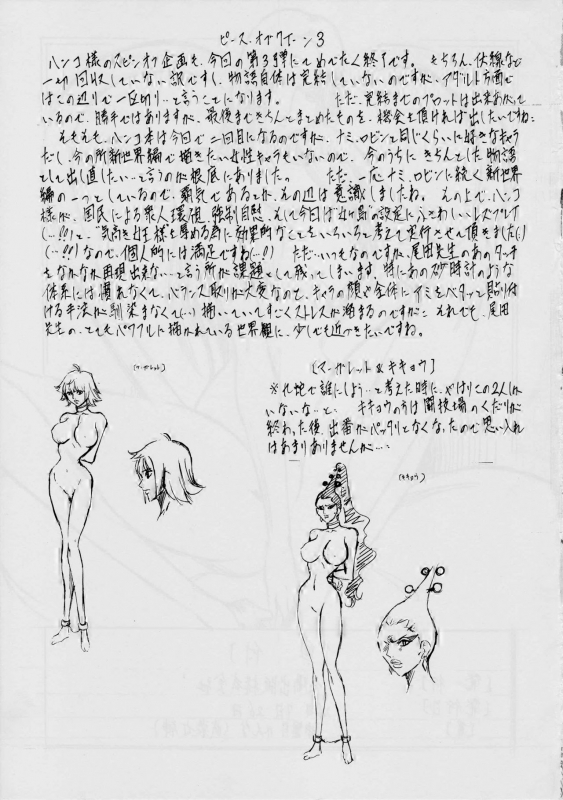 ピース・オブ・クイーン3
ハンコ様のスピンオフ企画も、今回の第3弾にてめでたく終了です。もちろん、伏線など
一切回収していない訳ですし、物語自体は完結していないのですが、アダルト方面で
はこの辺りで一区切り…と言うことになります。 ただ、完結までのプロットは出来あがって
いるので、勝手ではありますが、最後まできちんとまとめたものを、機会を頂ければ出したいですね…
そもそも、ハンコ本は今回で二回目になるのですが、ナミ、ロビンと同じくらいに好きなキャラ
だし、今の所新世界編で描きたい女性キャラもいないので、今のうちにきちんとした物語
として出し直したい…と言うのが根底にありました。 ただ、一応ナミ、ロビンに続く新世界
編の一つとしているので、覇気であるとか、その辺は意識しましたね。その上で、ハンコ
様が、国民による衆人環視、強制自慰、そして今回は の設定にふさわしいレズプレイ
(…!!)と、"気高き女王様"を辱める為に効果的なことをいちいち考えて実行させて頂きました(!)
(…!!)なので、個人的には満足ですね(…!) ただ…いつもなのですが、尾田先生のあのタッチ
をなかなか再現出来ない…と言う所が課題として残ってしまいます。特にあの砂時計のような
体系には慣れなくて、バランス取りが大変なのと、キャラの顔や全体にアミをベタッと貼り付
ける手法が馴染まなくて(…)描いていてすごくストレスが溜まるのですが… それでも、尾田
先生の、とてもパワフルに描かれている世界観に、少しでも近づきたいですね。
[マーガレット]
[マーガレット&キキョウ]
※九蛇で誰にしよう…と考えた時に、やはりこの2人しか
いないな…と、 キキョウの方は闘技場のくだりが
終わった後、出番がパッタリとなくなったので思い入れ
はあまりありませんが…
[キキョウ]